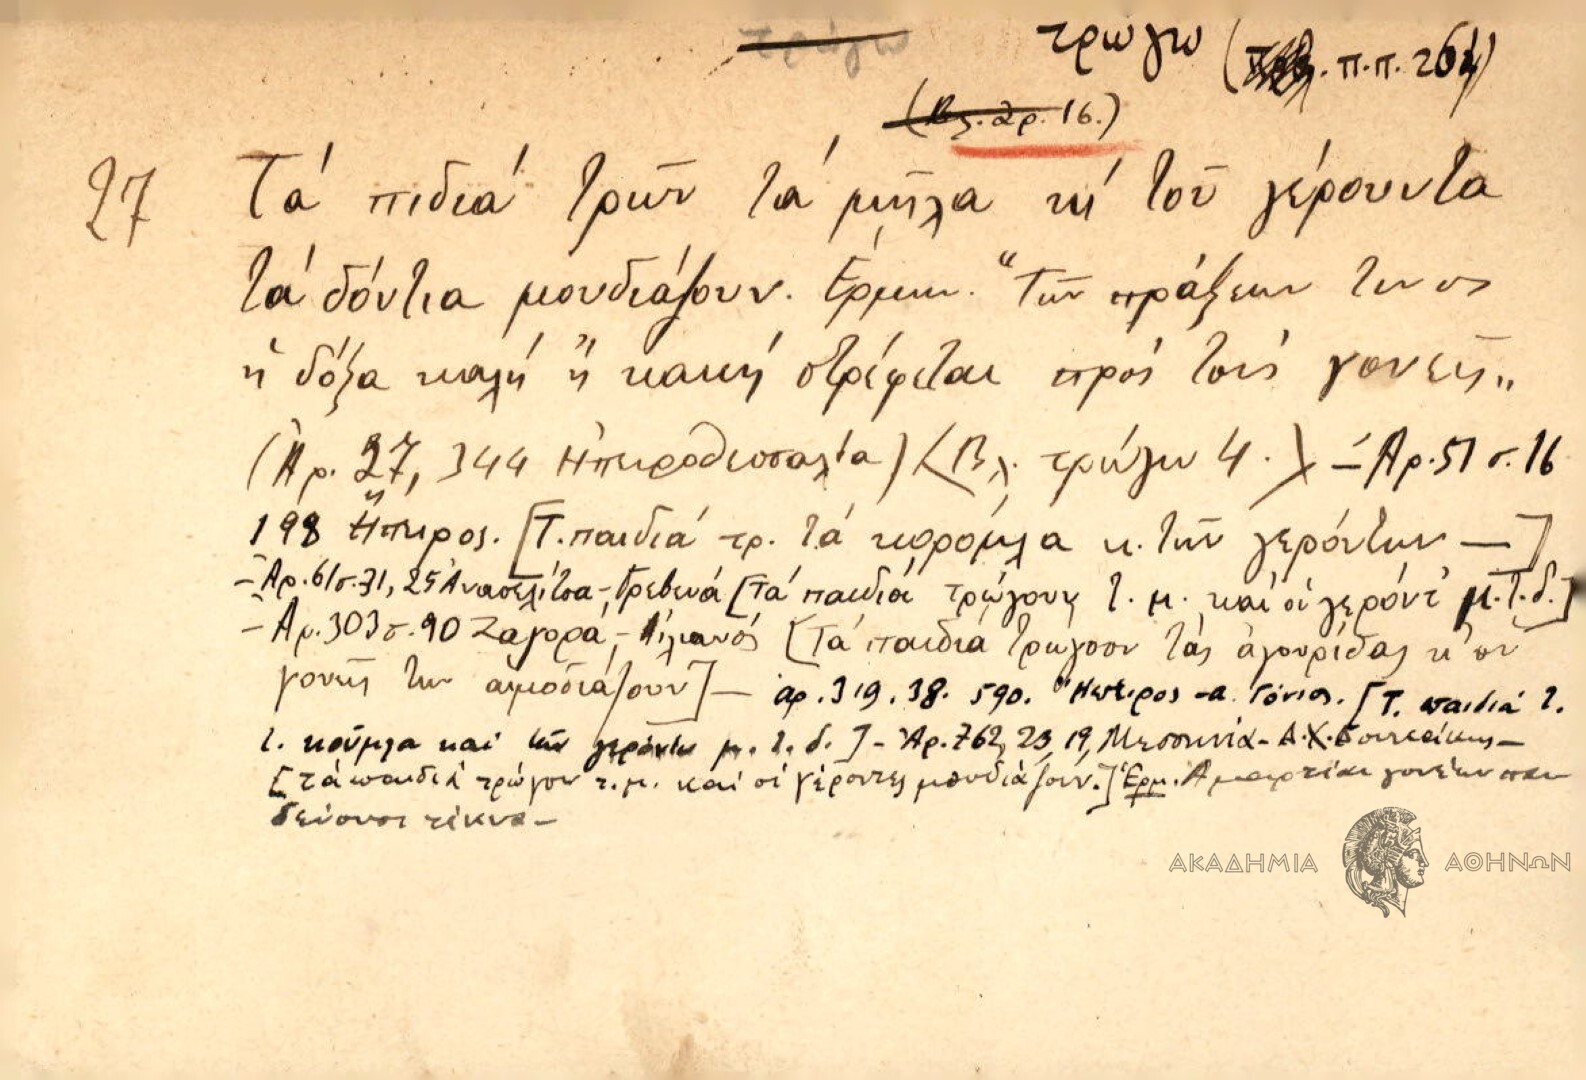 τρώγω τρώγω ( . π.π. 262)
(Βλ. αρ. 16.)
27 Τά πιδιά τρῶν τά μῆλα κί τοῦ γέρουντα
τά δόντια μουδιάζουν. Ἑρμην. "Τῶν πράξεων τινος
ἡ δόξα καλή ἤ κακή στρέφεται πρός τούς γονεῖς"
(Ἀρ. 27, 344 Ἠπειροθεσσαλία) (Βλ. τρώγω 4.) – Ἀρ. 51 σ. 16
198 Ἤπειρος. [Τ. παιδιά τρ. τά κορόμηλα κ. τῶν γερόντων —]
– Ἀρ. 61 σ. 71, 25 Ἀνασελίτσα – Γρεβενά [Τά παιδιά τρώγουν τ. μ. καί οἱ γερόντ' μ. τ. δ.]
– Ἀρ. 303 σ. 90 Ζαγορά, – [Τά παιδιά τρώγοσν τάς ἀγουρίδας κ' ον
γονεῖς των αἱμοδιάζουν] — αρ. 319. 38. 590. Ἤπειρος – α Γόνιος. [Τ. παιδιά τ.
τ. κούμλα καί τῶν γερόντω μ. τ. δ.] – Ἀρ. 762, 23, 19, Μεσσηνία – Α.Χ. –
[τά παιδιά τρώγον τ. μ. καί οἱ γέροντες μουδιάζουν.] Ἑρμ. Ἁμαρτίαι γονέων παι
δεύουσι τέκνα –
ΑΚΑΔΗΜΙΑ ΑΘΗΝΩΝ